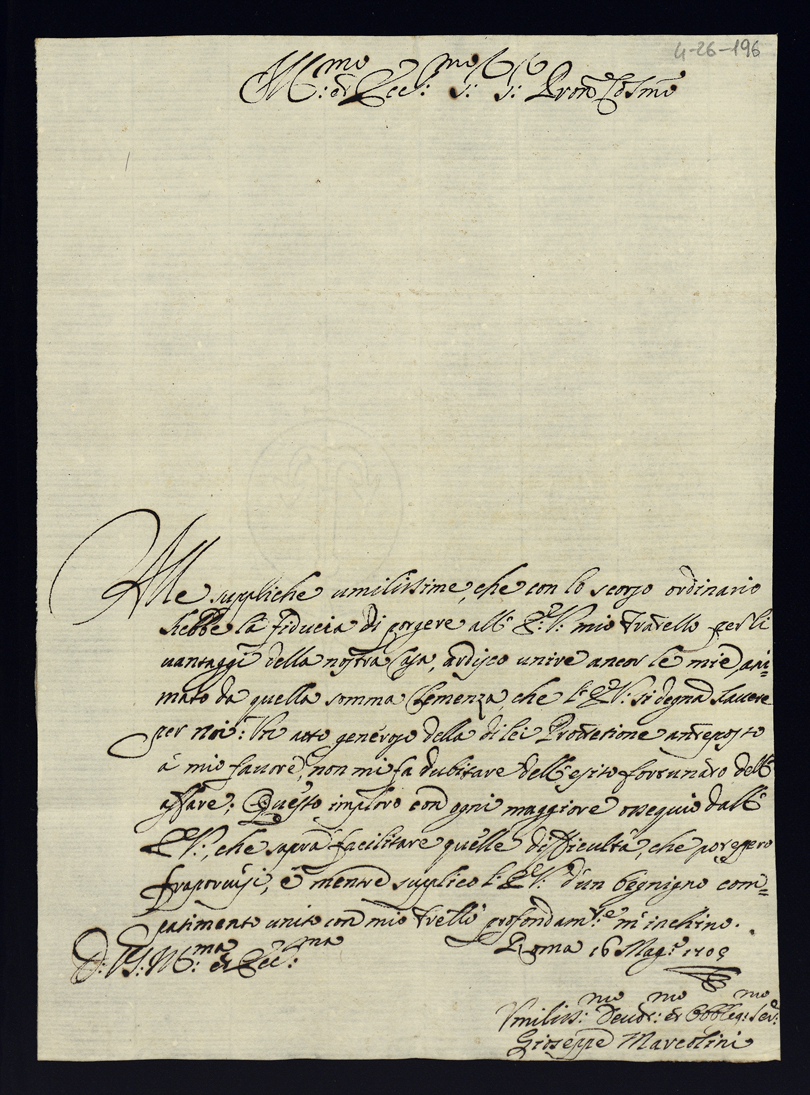 4-26-196
Ill:mo et Ecc:mo S: S: Pron Colmo
Alle suppliche umilissime, che con lo scorso ordinario
hebbe la fiducia di porgere all' E: V: mio Fratello per li
vantaggi della nostra Casa, ardisco unire ancor le mie, ani=
mato da quella somma Clemenza, che l' E: V: si degna d'havere
per noi: Un atto generoso della di lei Protettione anteposto
à mio favore, non mi fa dubitare dell' esito fortunato dell'
affare; Questo imploro con ogni maggiore ossequio dall'
E: V:, che saprà facilitare quelle difficultà, che potessero
fraporvisi, e mentre supplico l' E: V: d'un begnigno com=
patimento unito con mio Frello profondam:te m'inchino.
D: V: S: Ill:ma et Ecc:ma Roma 16 Mag: 1705
Umiliss:mo Devot:mo et Obblig:mo Ser:
Gioseppe Marcolini